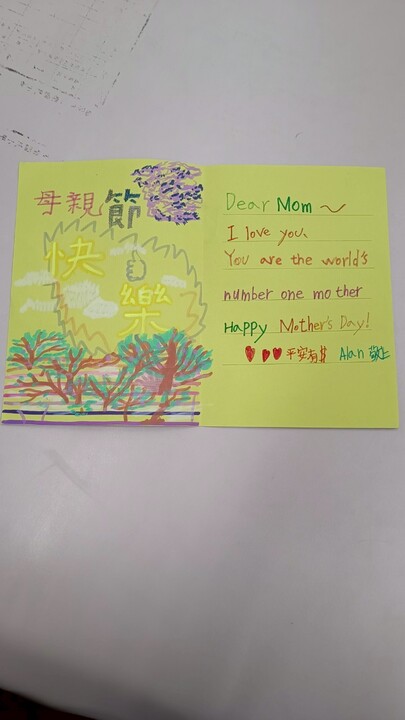 母親節
快
樂
Dear Mom ~
I love you.
You are the world's
number one mother
Happy Mother's Day!
Alan 敬上